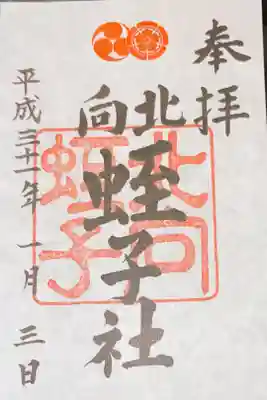 奉拝
北向
蛭子社
北向
蛭子
平成三十一年 一月 三日